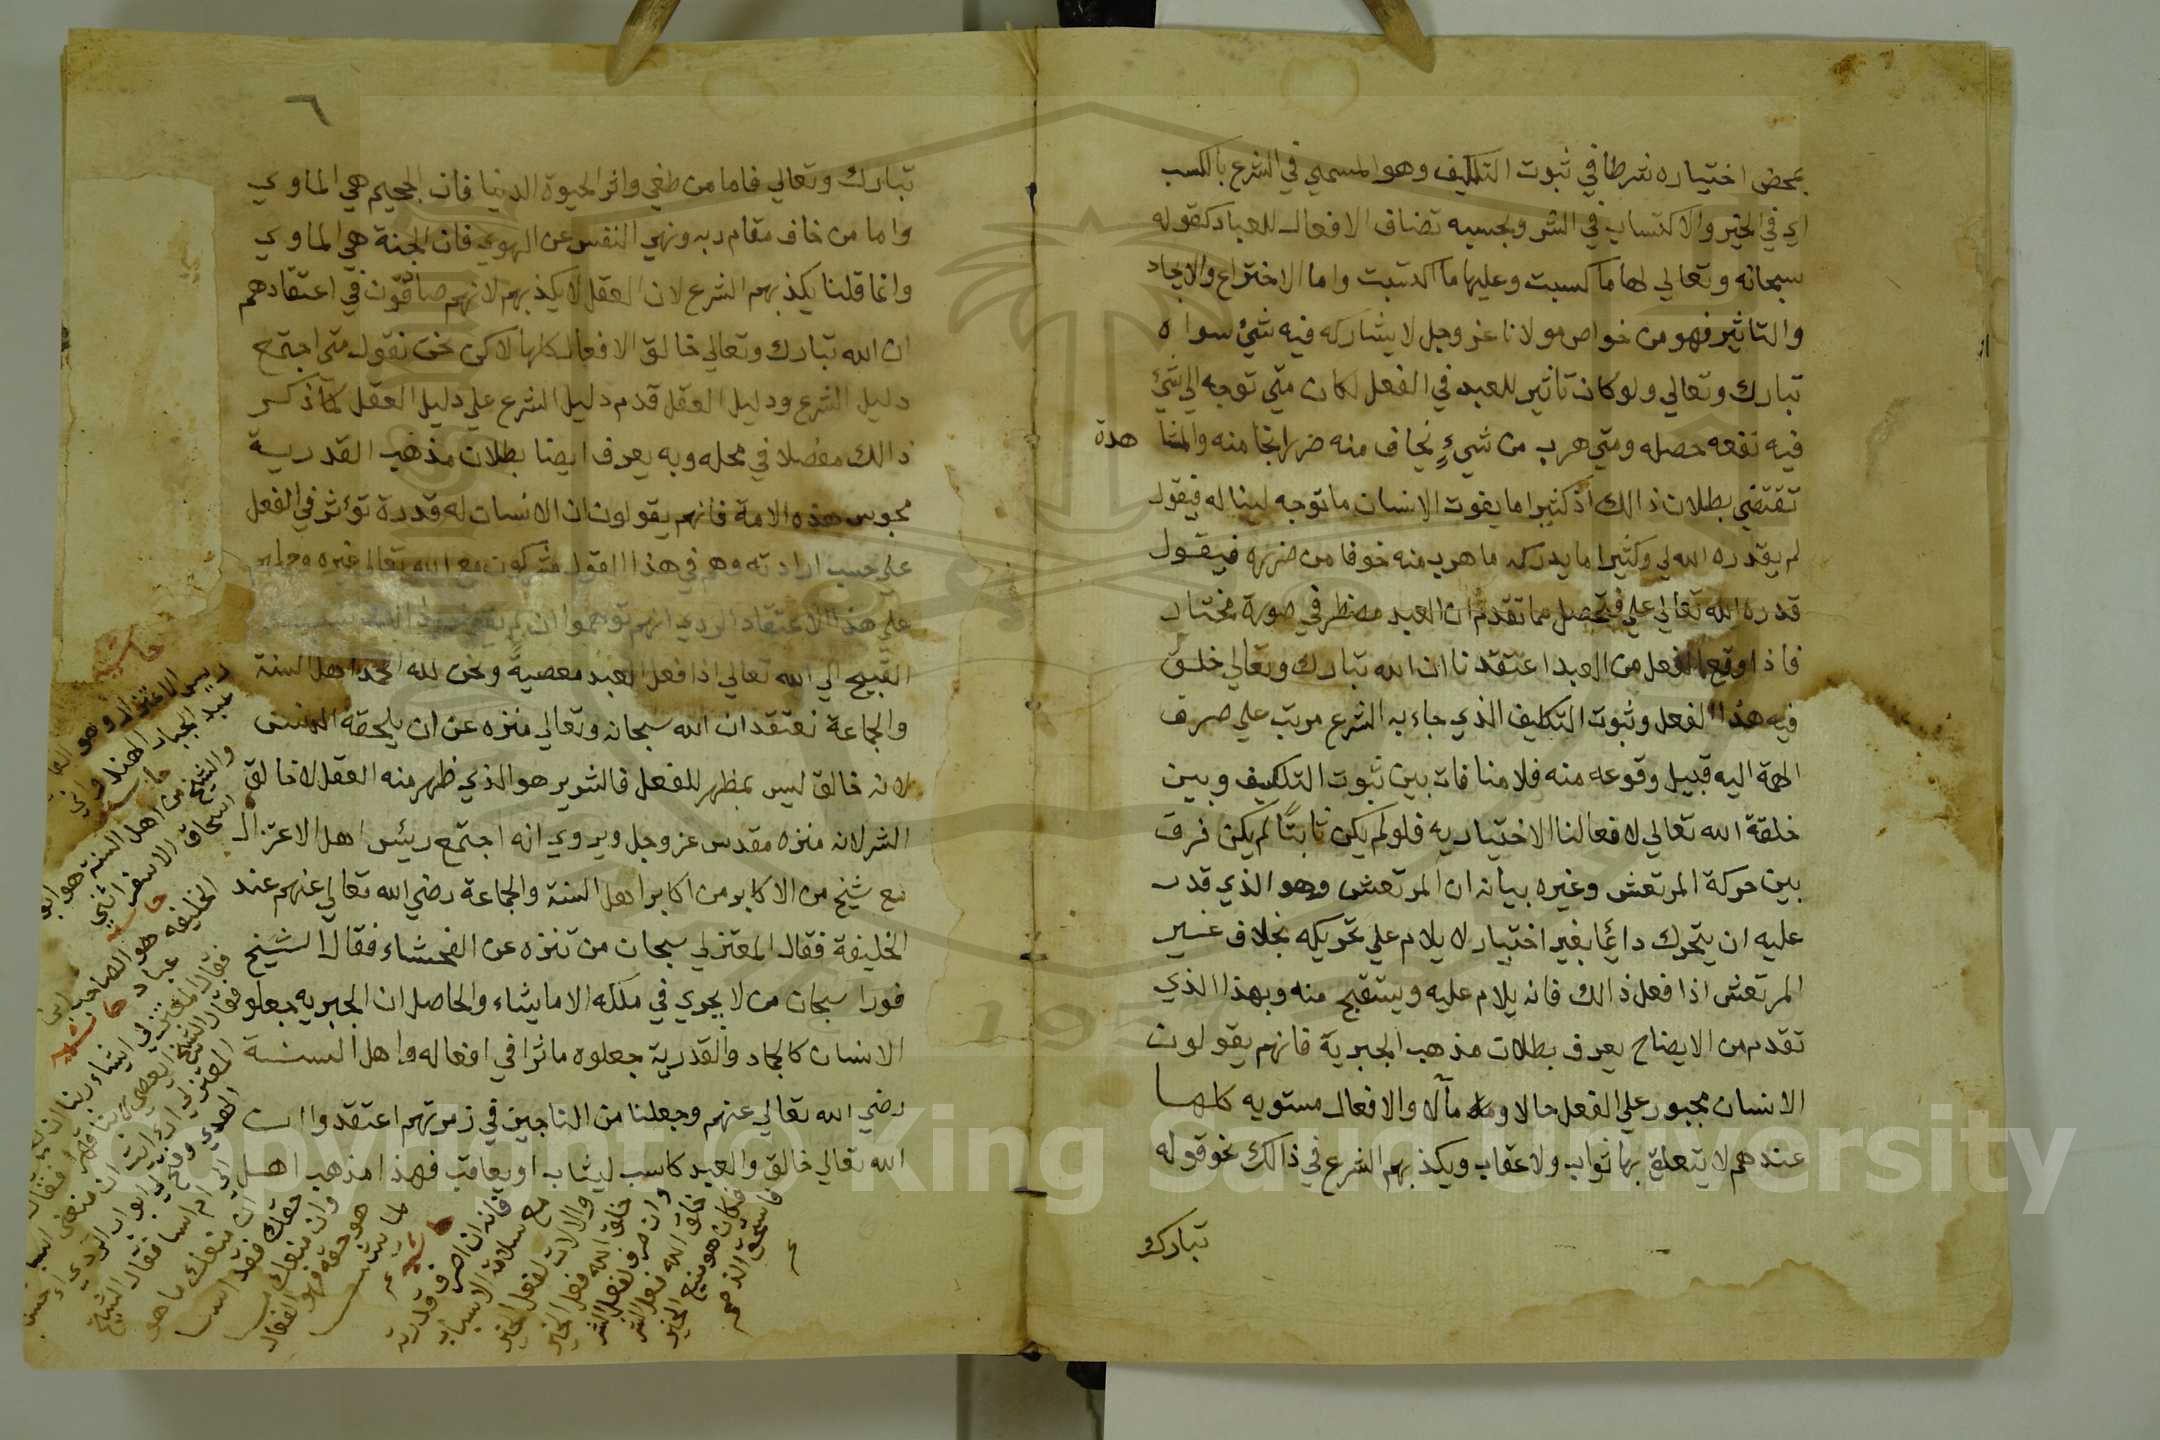 بمحض اختياره شرطا في ثبوت التكليف وهو المسمي في الشرع بالكسب
اي في الخير والاكتساب في الشر وبحسبه تضاف الافعال للعباد كقوله
سبحانه وتعالي لها ما كسبت وعليها ما اكتسبت واما الاختراع والايجاد
والتاثير فهو من خواص مولانا عز وجل لا يشاركه فيه شيء سواه
تبارك وتعالي ولو كان تاثير للعبد في الفعل لكان متي توجه الي شيء
فيه نفعه حصله ومتي هرب من شيءٍ يخاف منه ضررا نجا منه والمشا هدة
تقتضي بطلان ذالك اذ كثيرا ما يفوت الانسان ما توجه لينا له فيقول
لم يقدره الله لي وكثيرا ما يدركه ما هرب منه خوفا من ضرره فيقول
قدره الله تعالي علي فتحصل مما تقدم ان العبد مضطر في صورة مختار
فاذا وقع الفعل من العبد اعتقدنا ان الله تبارك وتعالي خلق
فيه هذا الفعل وثبوت التكليف الذي جاء به الشرع مرتب علي صرف
الهمة اليه قبيل وقوعه منه فلا منافات بين ثبوت التكليف وبين
خلقة الله تعالي لافعالنا الاختياريه فلو لم يكن ثابتًا لم يكن فرق
بين حركة المرتعش وغيره بيانه ان المرتعش وهو الذي قدر
عليه ان يتحرك دائما بغير اختيار لا يلام علي تحريكه بخلاف غير
المرتعش اذا فعل ذالك فانه يلام عليه ويستقبح منه وبهذا الذي
تقدم من الايضاح يعرف بطلان مذهب الجبرية فانهم يقولون
الانسان مجبور علي الفعل حالا ومآلا والافعال مستويه كلها
عندهم لا يتعلق بها ثواب ولا عقاب ويكذبهم الشرع في ذالك نحو قوله
تبارك
٦
تبارك وتعالي فاما من طغي واثر الحيوة الدنيا فان الجحيم هي الماوي
واما من خاف مقام ربه ونهي النفس عن الهوي فان الجنة هي الماوي
وانما قلنا يكذبهم الشرع لان العقل لا يكذبهم لانهم صادقون في اعتقادهم
ان الله تبارك وتعالي خالق الافعال كلها لاكن نحن نقول متي اجتمع
دليل الشرع ودليل العقل قدم دليل الشرع علي دليل العقل كما ذكر
ذالك مفصلا في محله وبه يعرف ايضا بطلان مذهب القدرية
مجوس هذه الامة فانهم يقولون ان الانسان له قدرة تؤثر في الفعل
علي حسب ارادته وهم في هذا القول مشركون مع الله تعالي غيره
علي هذا الاعتقاد الردي انهم توهموا ان
القبيح الي الله تعالي اذا فعل العبد معصية ونحن لله الحمد اهل السنة
والجماعة نعتقد ان الله سبحانه وتعالي منزه عن ان يلحقه
لانه خالق ليس بمظهر للفعل فالشرير هو الذي ظهر منه الفعل لا خالق
الشر لانه منزه مقدس عز وجل ويروي انه اجتمع رئيس اهل الاعتزال
مع شيخ من الاكابر من اكابر اهل السنة والجماعة رضي الله تعالي عنهم عند
الخليفة فقال المعتزلي سبحان من تنزه عن الفحشاء فقال الشيخ
فورا سبحان من لا يجري في ملكه الا ما يشاء والحاصل ان الجبريه جعلو
الانسان كالجماد والقدرية جعلوه ماثرا في افعاله واهل السنة
رضي الله تعالي عنهم وجعلنا من الناجين في زمرتهم اعتقدوا ان
الله تعالي خالق والعبد كاسب ليثاب او يعاقب فهذا مذهب اهل
حاشيه
ريس الاعتزال وهو
عبد الجبار الهند
حاشيه
والشيخ من اهل السنة هو ابو
اسحاق الاسفرائني
حاشيه
الخليفه هو الصاحب ابن
عباد
حاشيه
فقال المعتزلي ايشاء ربنا ان
فقال الشيخ ايعصي ربنا قهرا فقال
المعتزلي ارايت ان منعني
الهدي وقضي
فقال الشيخ
ان منعك ما هو
حقك فقد اسا
وان منعك
هو حقه فهو
لما يشا
حاشيه
فانه ان اصرف قدرته
مع سلامة الاسباب
والالات لفعل الخير
خلق الله فعل الخير
وان صرف لفعل الشر
خلق الله فعل الشر
فكان هو منبع الخير
فاستحق الذم